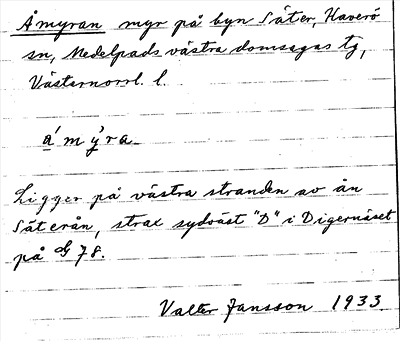 Åmyran myr på byn Säter, Haverö
sn, Medelpads västra domsagas tg,
Västernorrl. l.
a´ m y̆ra
Ligger på västra stranden av ån
Säterån, strax sydväst "D" i Digernäset
på 78.
Valter Jansson 1933